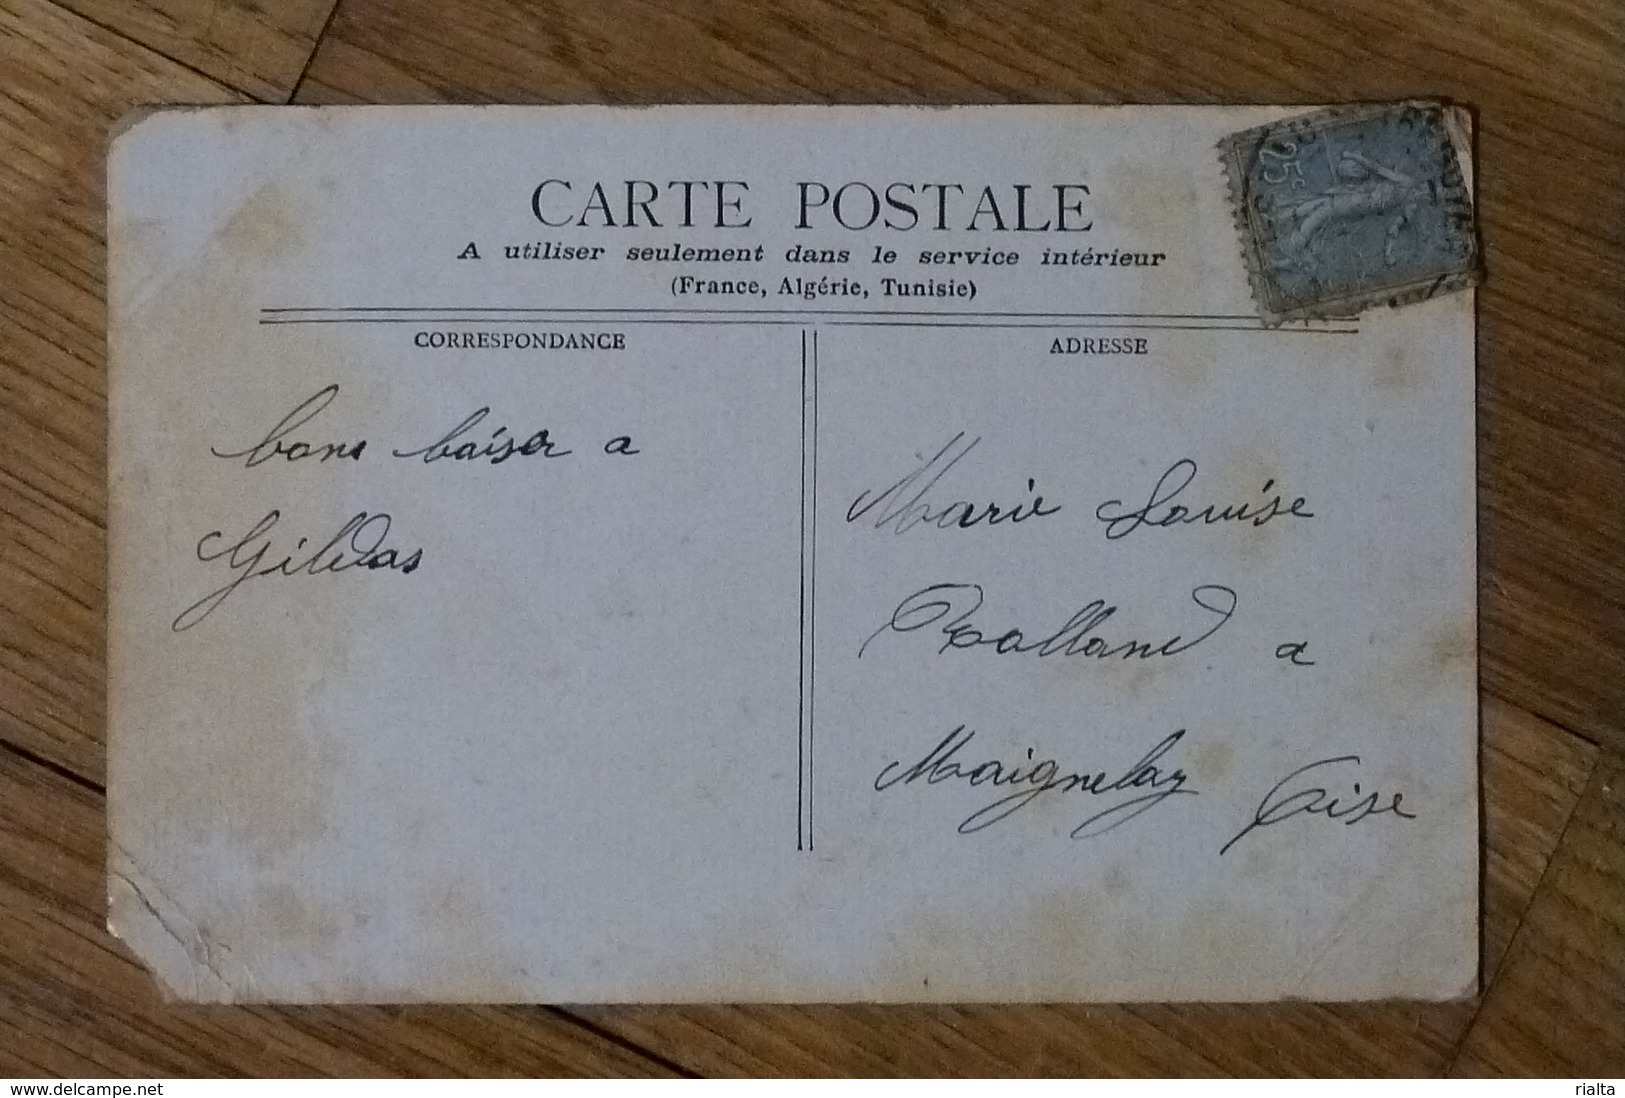 CARTE POSTALE
A utiliser seulement dans le service intérieur
(France, Algérie, Tunisie)
CORRESPONDANCE
bons baiser a
Gildas
ADRESSE
Marie Louise
Rolland a
Maignelay Oise
25c
www.delcampe.net
rialta